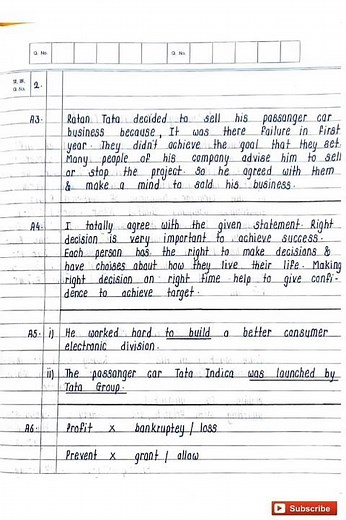 Q. No.
Q. No.
Q. No. 2.
A3. Ratan Tata decided to sell his passanger car
business because, It was there failure in first
year. They didn't achieve the goal that they set.
Many people of his company advise him to sell
or stop the project. so he agreed with them
& make a mind to sold his business.
A4. I totally agree with the given statement. Right
decision is very important to achieve success.
Each person has the right to make decisions &
have choises about how they live their life. Making
right decision on right time help to give confi-
dence to achieve target.
A5. i) He worked hard to build a better consumer
electronic division.
ii) The passenger car Tata Indica was launched by
Tata Group.
A6. Profit × bankruptcy / loss
Prevent × grant / allow
Subscribe